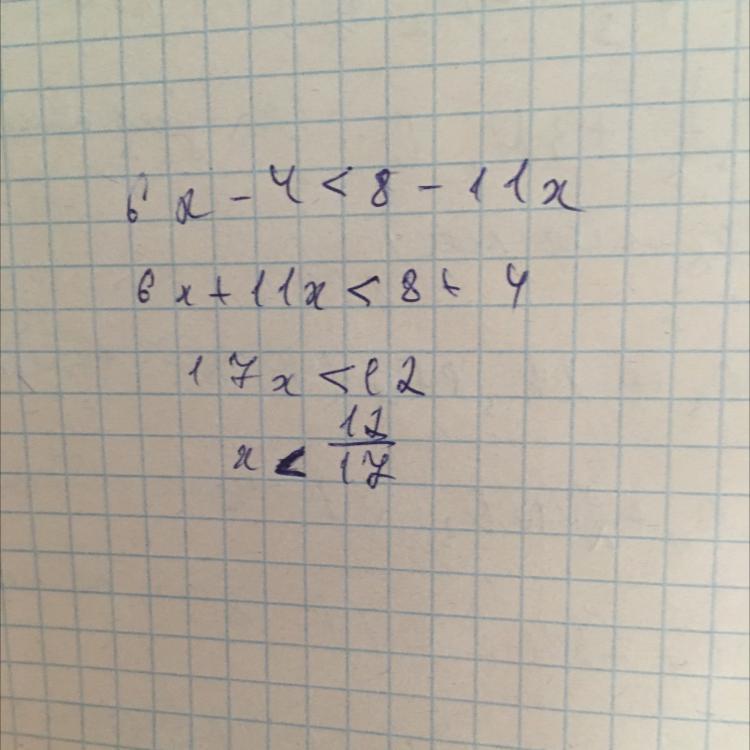 6x - 4 < 8 - 11x
6x + 11x < 8 + 4
17x < 12
x < 12/17